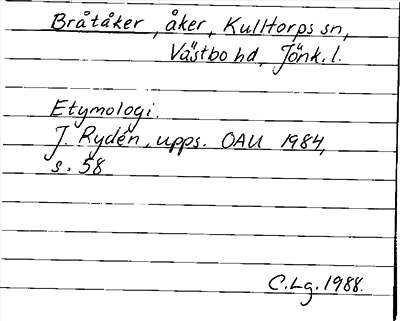 Bråtåker, åker, Kulltorps sn,
Västbo hd, Jönk. l.
Etymologi.
J. Rydén, upps. OAU 1984,
s. 58
C.Lg. 1988.